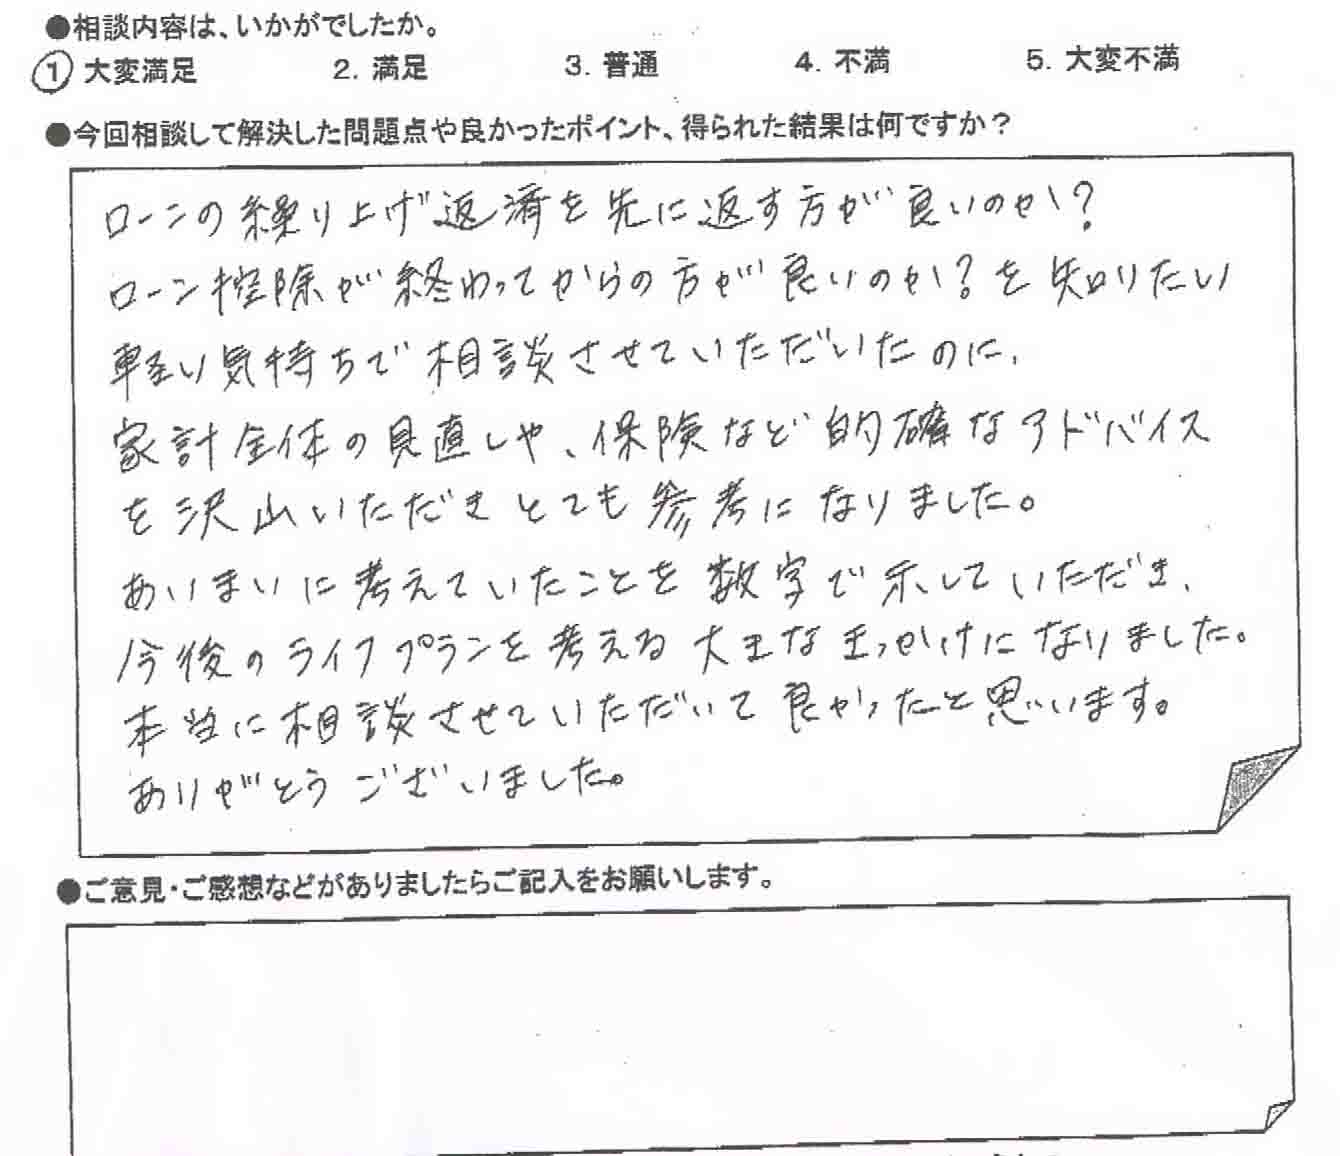 ●相談内容は、いかがでしたか。
① 大変満足 2. 満足 3. 普通 4. 不満 5. 大変不満
●今回相談して解決した問題点や良かったポイント、得られた結果は何ですか？
ローンの繰り上げ返済を先に返す方が良いのか？
ローン控除が終わってからの方が良いのか？を知りたい
軽い気持ちで相談させていただいたのに、
家計全体の見直しや、保険など的確なアドバイス
を沢山いただきとても参考になりました。
あいまいに考えていたことを数字で示していただき、
今後のライフプランを考える大きなきっかけになりました。
本当に相談させていただいて良かったと思います。
ありがとうございました。
●ご意見・ご感想などがありましたらご記入をお願いします。